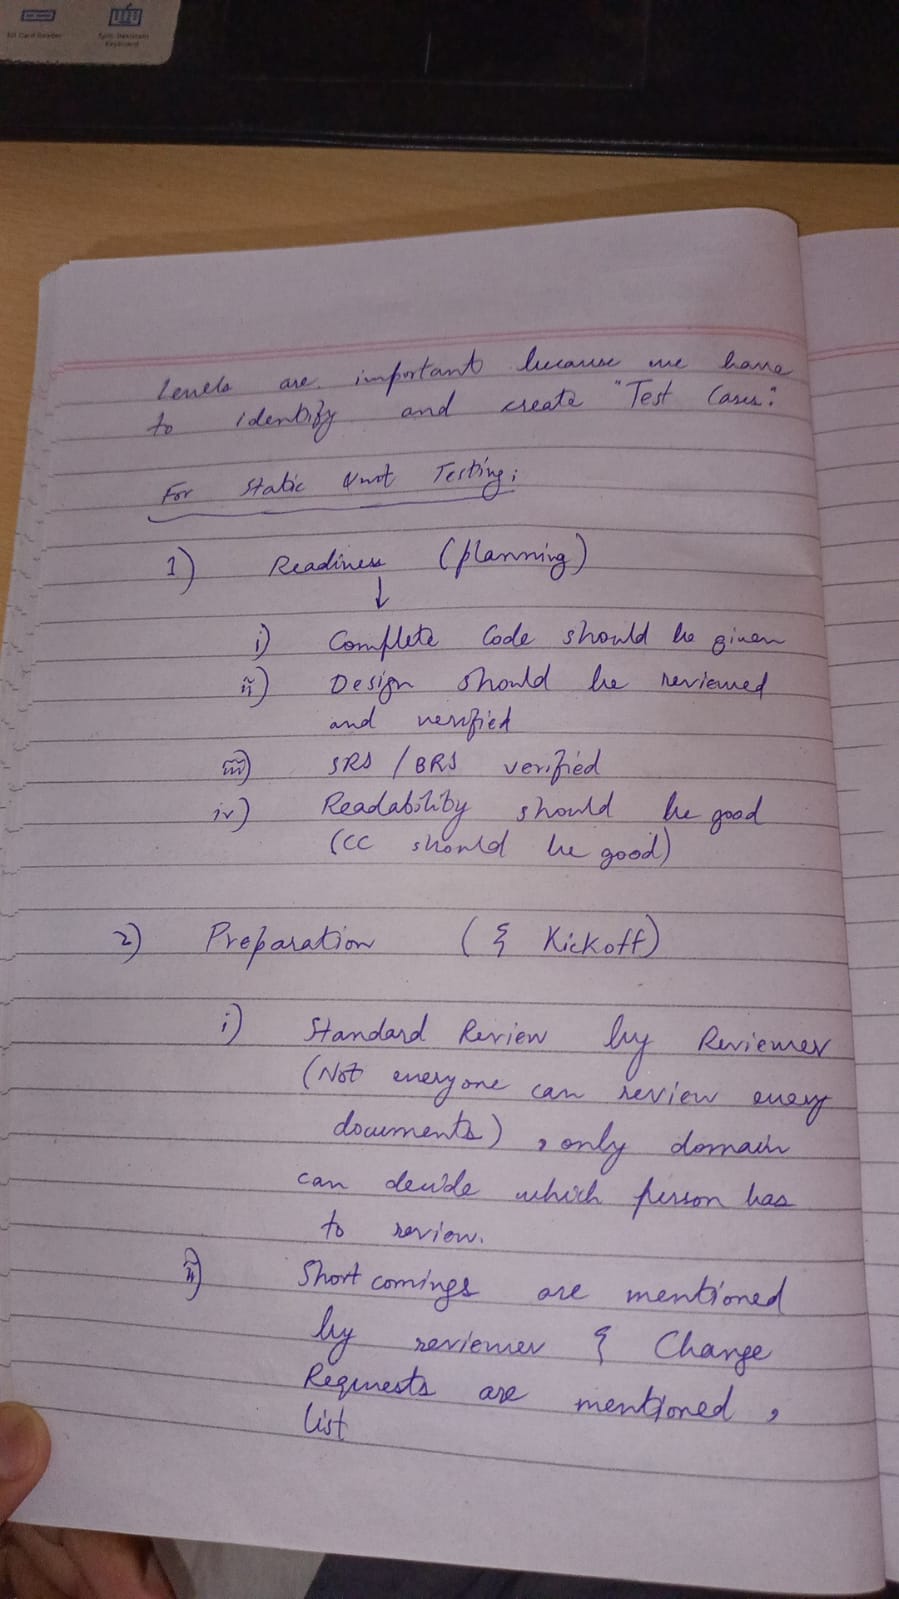 SD Card Reader
Spill-Resistant
Keyboard
Levels are important because we have
to identify and create "Test Cases".
For Static Unit Testing:
1) Readiness (planning)
↓
i) Complete Code should be given
ii) Design should be reviewed
and verified
iii) SRS / BRS verified
iv) Readability should be good
(CC should be good)
2) Preparation (& Kickoff)
i) Standard Review by Reviewer
(Not everyone can review every
documents), only domain
can decide which person has
to review.
ii) Short comings are mentioned
by reviewer & Change
Requests are mentioned,
list